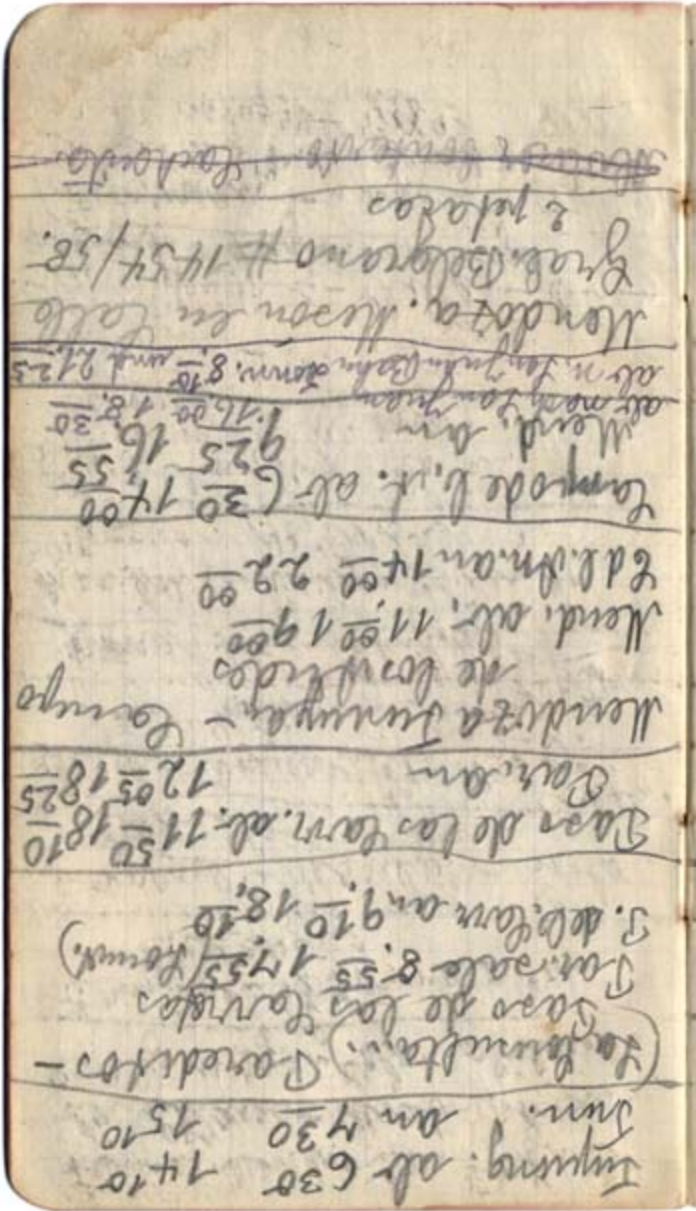 Tupung. ab 6 30 14 10
Tun. an 7 30 15 10
(La Consulta.) Pareditas -
Paso de las Carretas
Par. sale 8.55 17,55 (Domn.)
P. de l. Carr an 9,10 18,10
Paso de las Carr. ab. 11 50 18 10
Par. an 12 05 18 25
Mendoza Tunuyan - Campo
de los Andes
Mend. ab, 11,00 19 00
C d l. An. an 14 00 22 00
Campo de l, A. ab 6 30 14 00
Mend, an 9 25 16 55
ab nach San Juan 7. 16 00 18,30
ab n. San Juan Bahn Donn. 8,10 und 21,25
Mendoza. Meson en Calle
Gral. Belgrano # 1454/58.
2 petacas